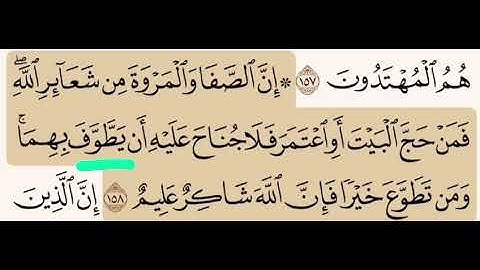 هُمُ ٱلْمُهْتَدُونَ ١٥٧ * إِنَّ ٱلصَّفَا وَٱلْمَرْوَةَ مِن شَعَآئِرِ ٱللَّهِۖ
فَمَنْ حَجَّ ٱلْبَيْتَ أَوِ ٱعْتَمَرَ فَلَا جُنَاحَ عَلَيْهِ أَن يَطَّوَّفَ بِهِمَاۚ
وَمَن تَطَوَّعَ خَيْرًا فَإِنَّ ٱللَّهَ شَاكِرٌ عَلِيمٌ ١٥٨ إِنَّ ٱلَّذِينَ